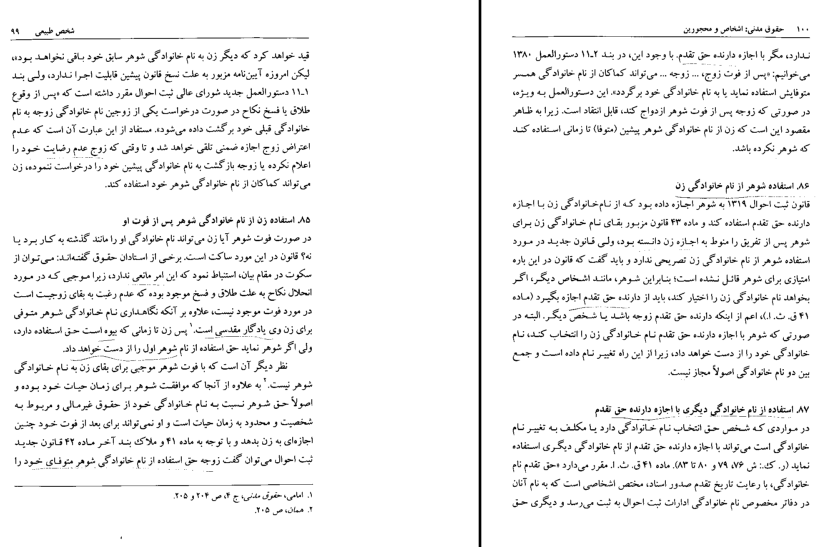 شخص طبیعی ۹۹
قید خواهد کرد که دیگر زن به نام خانوادگی شوهر سابق خود باقی نخواهد بود»،
لیکن امروزه آیین‌نامه مزبور به علت نسخ قانون پیشین قابلیت اجرا ندارد، ولی بند
۱-۱۱ دستورالعمل جدید شورای عالی ثبت احوال مقرر داشته است که «پس از وقوع
طلاق یا فسخ نکاح در صورت درخواست یکی از زوجین نام خانوادگی زوجه به نام
خانوادگی قبلی خود برگشت داده می‌شود». مستفاد از این عبارت آن است که عدم
اعتراض زوج اجازه ضمنی تلقی خواهد شد و تا وقتی که زوج عدم رضایت خود را
اعلام نکرده یا زوجه بازگشت به نام خانوادگی پیشین خود را درخواست ننموده، زن
می‌تواند کماکان از نام خانوادگی شوهر خود استفاده کند.
۸۵. استفاده زن از نام خانوادگی شوهر پس از فوت او
در صورت فوت شوهر آیا زن می‌تواند نام خانوادگی او را مانند گذشته به کار برد یا
نه؟ قانون در این مورد ساکت است. برخی از استادان حقوق گفته‌اند: می‌توان از
سکوت در مقام بیان، استنباط نمود که این امر مانعی ندارد، زیرا موجبی که در مورد
انحلال نکاح به علت طلاق و فسخ موجود بوده که عدم رغبت به بقای زوجیت است
در مورد فوت موجود نیست، علاوه بر آنکه نگاهداری نام خانوادگی شوهر متوفی
برای زن وی یادگار مقدسی است.۱ پس زن تا زمانی که بیوه است حق استفاده دارد،
ولی اگر شوهر نماید حق استفاده از نام شوهر اول را از دست خواهد داد.
نظر دیگر آن است که با فوت شوهر موجبی برای بقای زن به نام خانوادگی
شوهر نیست.۲ به علاوه از آنجا که موافقت شوهر برای زمان حیات خود بوده و
اصولاً حق شوهر نسبت به نام خانوادگی خود از حقوق غیرمالی و مربوط به
شخصیت و محدود به زمان حیات است و او نمی‌تواند برای بعد از فوت خود چنین
اجازه‌ای به زن بدهد و با توجه به ماده ۴۱ و ملاک بند آخر ماده ۴۲ قانون جدید
ثبت احوال می‌توان گفت زوجه حق استفاده از نام خانوادگی شوهر متوفای خود را
۱. امامی، حقوق مدنی، ج ۴، ص ۲۰۴ و ۲۰۵.
۲. همان، ص ۲۰۵.
۱۰۰ حقوق مدنی: اشخاص و محجورین
ندارد، مگر با اجازه دارنده حق تقدم. با وجود این، در بند ۲-۱۱ دستورالعمل ۱۳۸۰
می‌خوانیم: «پس از فوت زوج، ... زوجه ... می‌تواند کماکان از نام خانوادگی همسر
متوفایش استفاده نماید یا به نام خانوادگی خود برگردد». این دستورالعمل به ویژه،
در صورتی که زوجه پس از فوت شوهر ازدواج کند، قابل انتقاد است. زیرا به ظاهر
مقصود این است که زن از نام خانوادگی شوهر پیشین (متوفا) تا زمانی استفاده کند
که شوهر نکرده باشد.
۸۶. استفاده شوهر از نام خانوادگی زن
قانون ثبت احوال ۱۳۱۹ به شوهر اجازه داده بود که از نام‌خانوادگی زن با اجازه
دارنده حق تقدم استفاده کند و ماده ۴۳ قانون مزبور بقای نام خانوادگی زن برای
شوهر پس از تفریق را منوط به اجازه زن دانسته بود، ولی قانون جدید در مورد
استفاده شوهر از نام خانوادگی زن تصریحی ندارد و باید گفت که قانون در این باره
امتیازی برای شوهر قائل نشده است؛ بنابراین شوهر، مانند اشخاص دیگر، اگر
بخواهد نام خانوادگی زن را اختیار کند، باید از دارنده حق تقدم اجازه بگیرد (ماده
۴۱ ق. ث. ا.)، اعم از اینکه دارنده حق تقدم زوجه باشد یا شخص دیگر. البته در
صورتی که شوهر با اجازه دارنده حق تقدم نام خانوادگی زن را انتخاب کند، نام
خانوادگی خود را از دست خواهد داد، زیرا از این راه تغییر نام داده است و جمع
بین دو نام خانوادگی اصولاً مجاز نیست.
۸۷. استفاده از نام خانوادگی دیگری با اجازه دارنده حق تقدم
در مواردی که شخص حق انتخاب نام خانوادگی دارد یا مکلف به تغییر نام
خانوادگی است می‌تواند با اجازه دارنده حق تقدم از نام خانوادگی دیگری استفاده
نماید (ر. ک.: ش ۷۶، ۷۹ و ۸۰ تا ۸۳). ماده ۴۱ ق. ث. ا. مقرر می‌دارد «حق تقدم نام
خانوادگی، با رعایت تاریخ تقدم صدور اسناد، مختص اشخاصی است که به نام آنان
در دفاتر مخصوص نام خانوادگی ادارات ثبت احوال به ثبت می‌رسد و دیگری حق